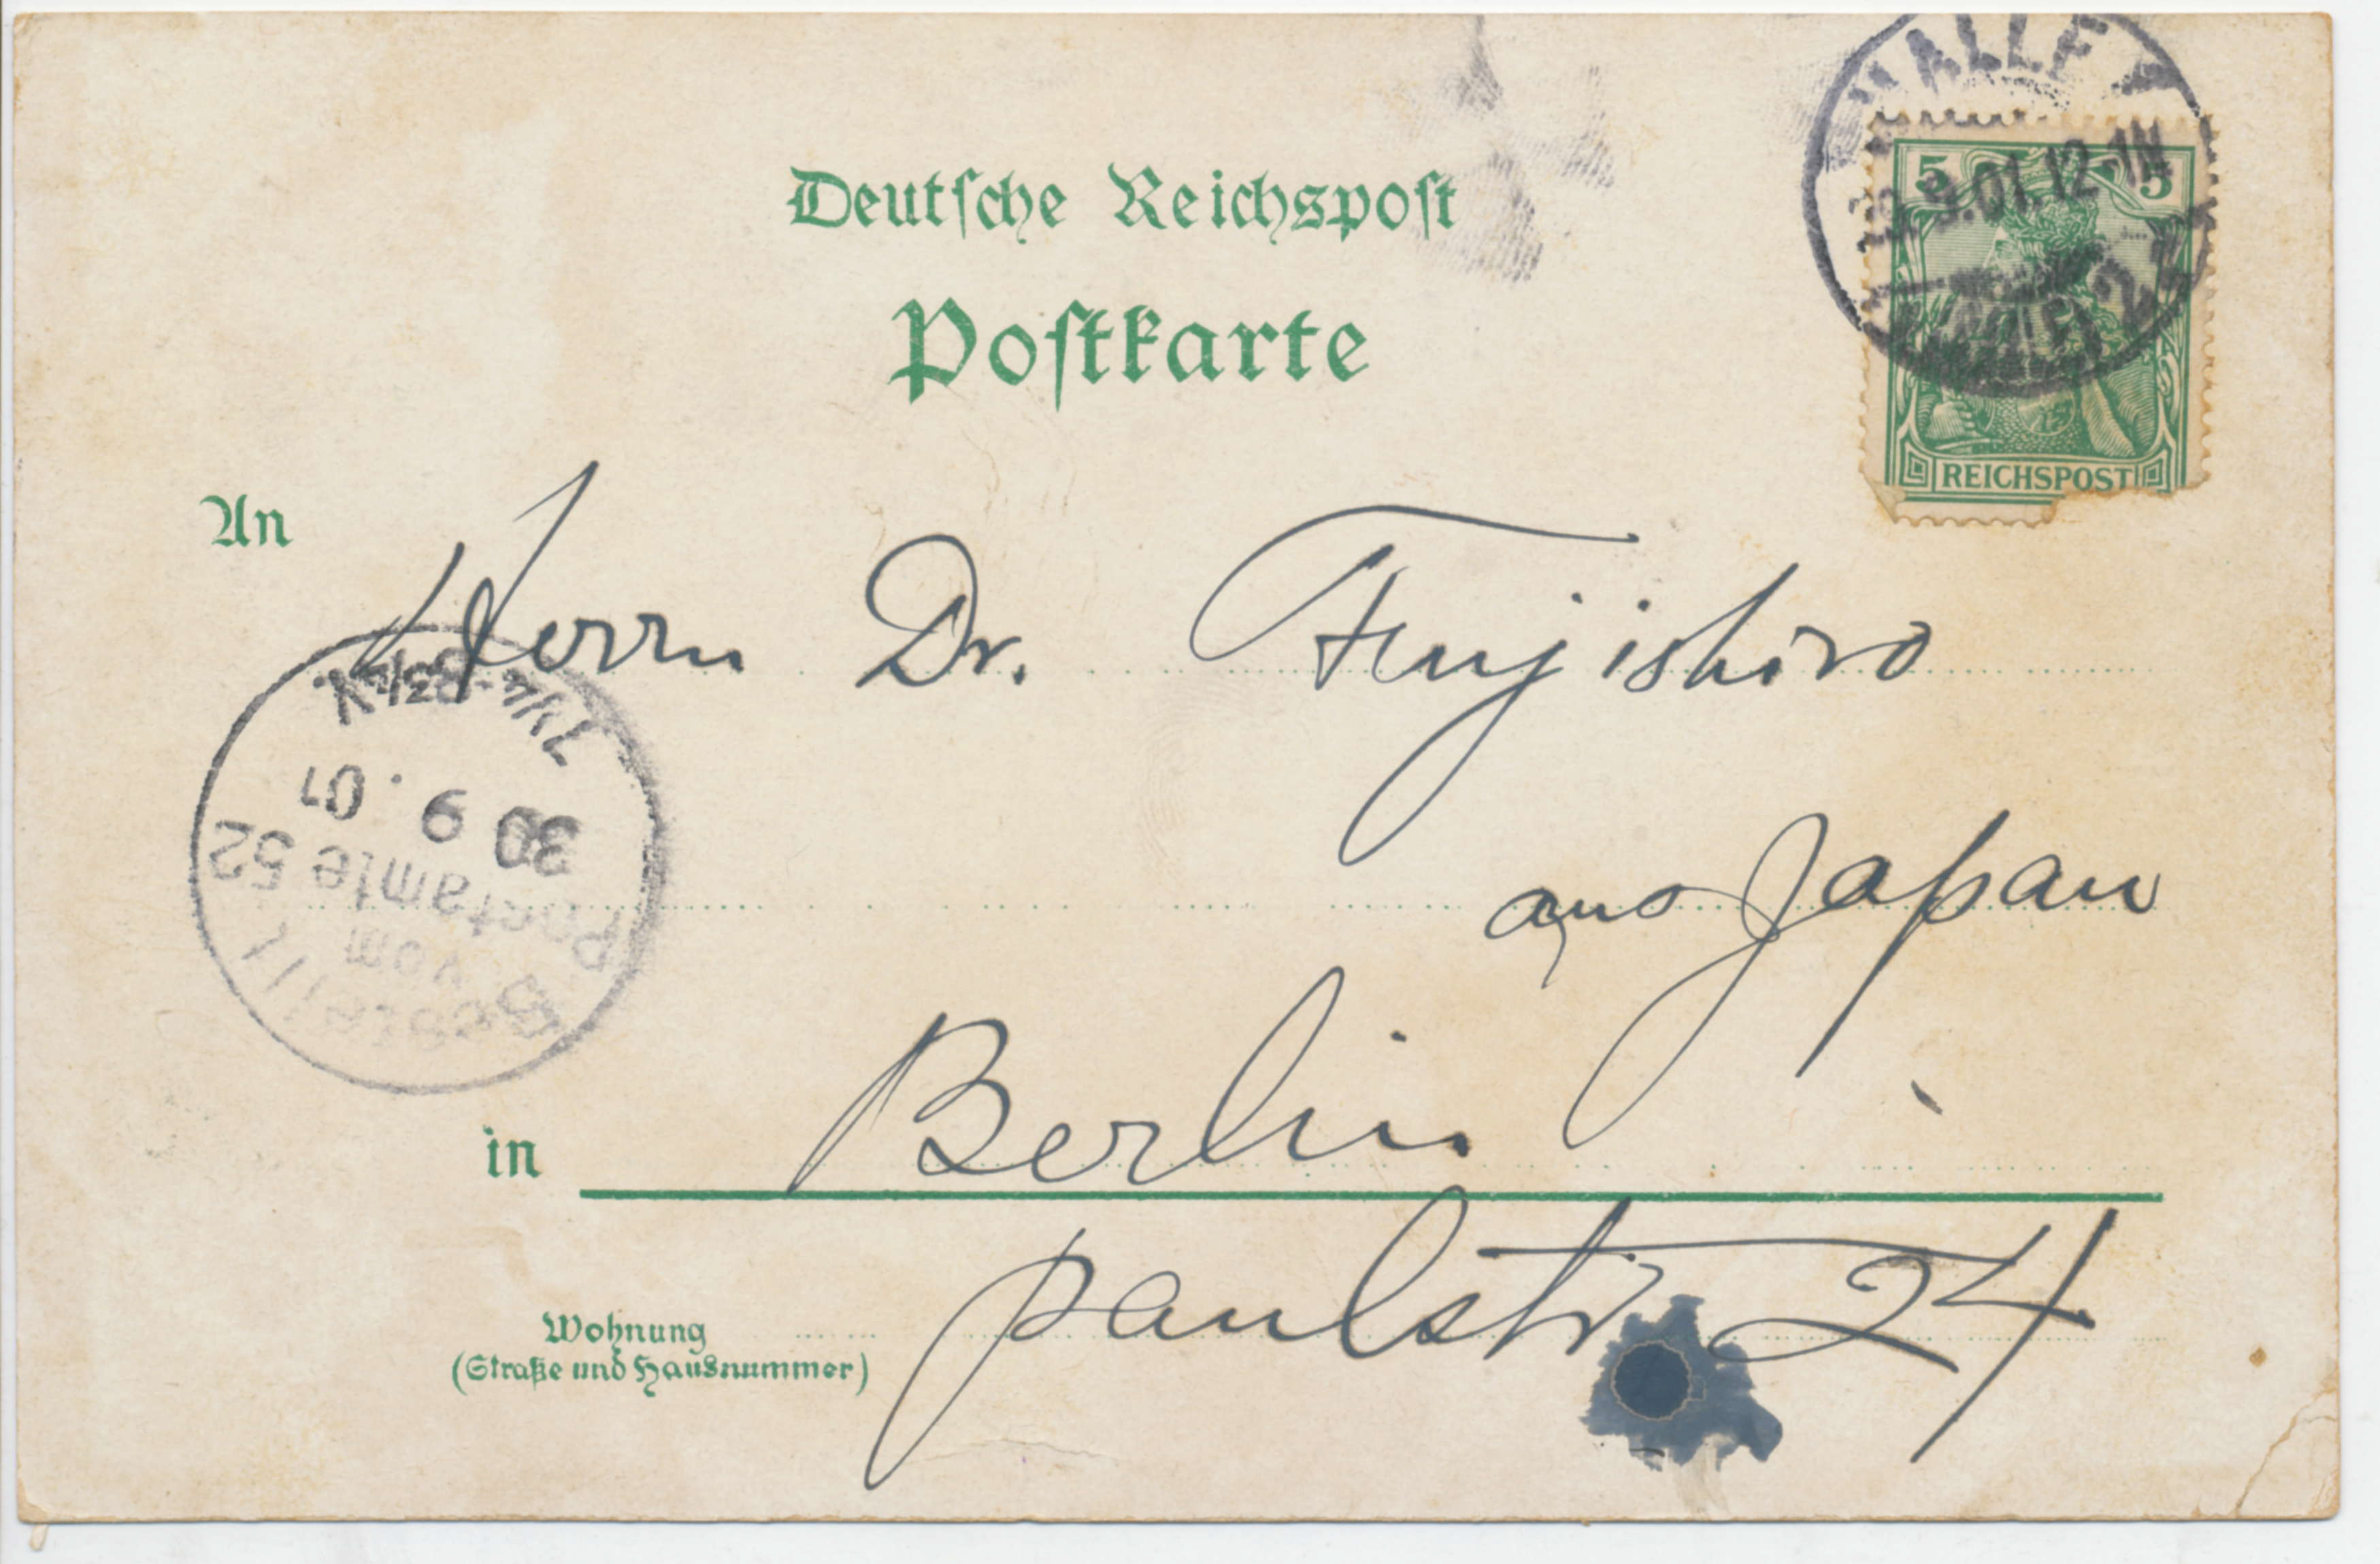 HALLE
9.01.12-1N
(SAALE) 2
5 5
REICHSPOST
Deutsche Reichspost
Postkarte
An
Herrn Dr. Fujishiro
aus Japan
in
Berlin.
Wohnung
(Straße und Hausnummer)
Paulstr 24
Bestellt
vom
Postamte 52
30 9. 01
7¼-8¾V.